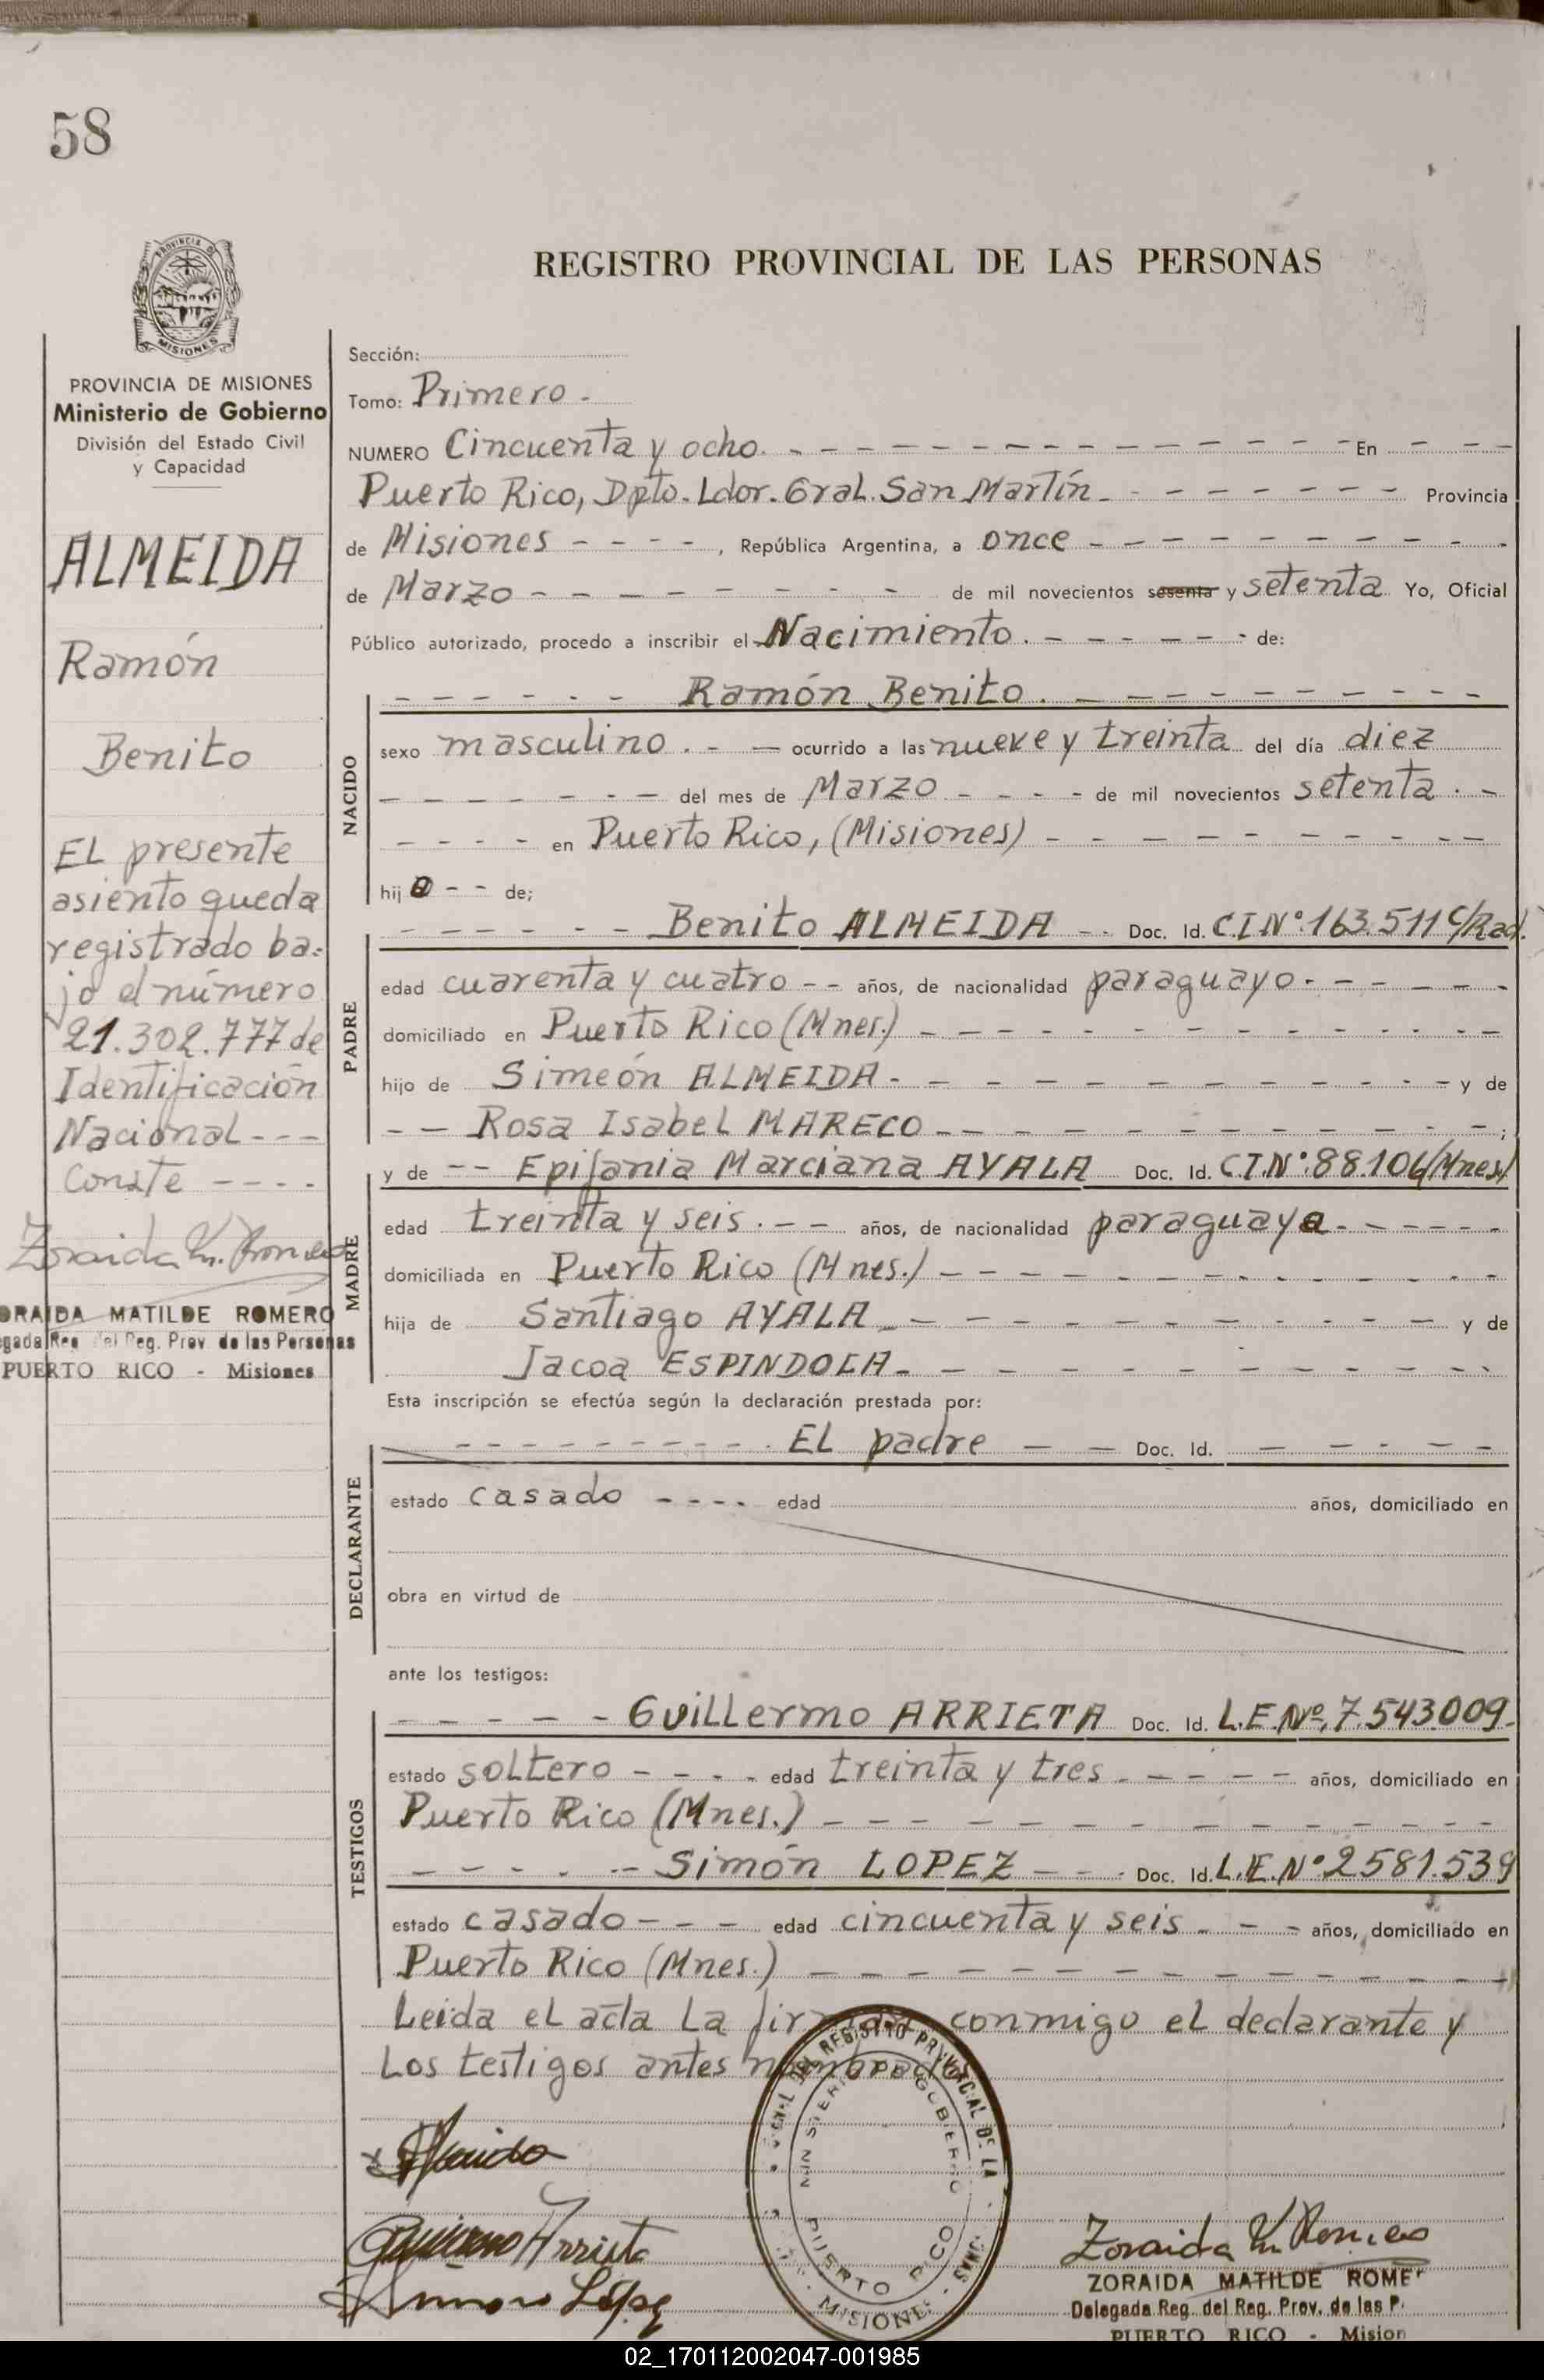 58
PROVINCIA DE
MISIONES
REGISTRO PROVINCIAL DE LAS PERSONAS
PROVINCIA DE MISIONES
Ministerio de Gobierno
División del Estado Civil
y Capacidad
ALMEIDA
Ramón
Benito
EL presente
asiento queda
registrado ba-
jo el número
21.302.777 de
Identificación
Nacional ---
Conste ----
Zoraida M. Romero
ORAIDA MATILDE ROMERO
gada Reg del Reg. Prov de las Personas
PUERTO RICO - Misiones
Sección:
Tomo: Primero -
NUMERO Cincuenta y ocho. - - - En - - -
Puerto Rico, Dpto. Ldor. Gral. San Martín - - - Provincia
de Misiones - - - - , República Argentina, a once - - -
de Marzo - - - de mil novecientos sesenta y setenta Yo, Oficial
Público autorizado, procedo a inscribir el Nacimiento. - - - de:
NACIDO
- - - Ramón Benito. - - -
sexo masculino. - - ocurrido a las nueve y treinta del día diez
- - - del mes de Marzo - - - - de mil novecientos setenta. -
- - - - en Puerto Rico, (Misiones) - - -
hij o - - de;
PADRE
- - - Benito ALMEIDA - - Doc. Id. C.I Nº 163.511 C/Rad.
edad cuarenta y cuatro - - años, de nacionalidad paraguayo. - - -
domiciliado en Puerto Rico (Mnes.) - - -
hijo de Simeón ALMEIDA - - - y de
- - Rosa Isabel MARECO - - - ;
MADRE
y de - - Epifania Marciana AYALA Doc. Id. C.I.Nº 88.106 (Mnes)
edad treinta y seis. - - años, de nacionalidad paraguaya - - -
domiciliada en Puerto Rico (Mnes.) - - -
hija de Santiago AYALA - - - y de
Jacoa ESPINDOLA - - -
Esta inscripción se efectúa según la declaración prestada por:
DECLARANTE
- - - EL padre - - Doc. Id. - - -
estado casado - - - - edad años, domiciliado en
obra en virtud de
ante los testigos:
TESTIGOS
- - - Guillermo ARRIETA Doc. Id. L.E.Nº 7.543.009.
estado soltero - - - - edad treinta y tres - - - años, domiciliado en
Puerto Rico (Mnes.) - - -
- - - Simón LOPEZ - - - Doc. Id. L.E.Nº 2581.539
estado casado - - - edad cincuenta y seis - - - años, domiciliado en
Puerto Rico (Mnes.) - - -
Leída el acta la firman conmigo el declarante y
los testigos antes nombrados
Guillermo Arrieta
López
REGISTRO PROVINCIAL DE LA
MINISTERIO DE GOBIERNO
PUERTO RICO
MISIONES
Zoraida M. Romero
ZORAIDA MATILDE ROME
Delegada Reg. del Reg. Prov. de las P.
PUERTO RICO - Mision
02_170112002047-001985